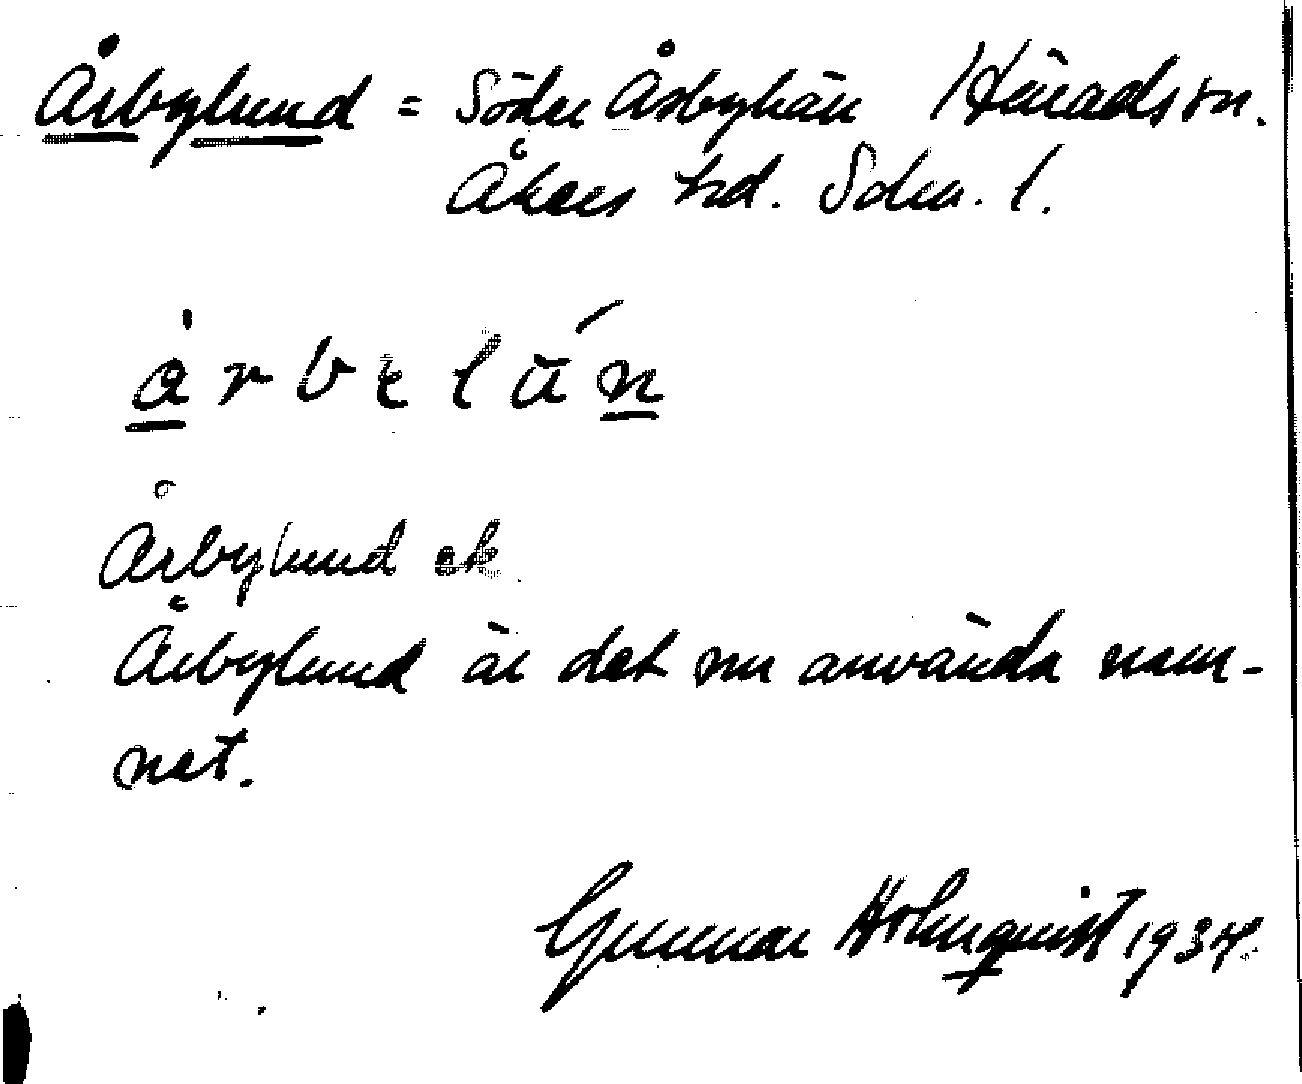 Årbylund = Söder Årbyhän Häradssn.
Åkers hd. Sdm. l.
å r b e l ú n
Årbylund ek
Årbylund är det nu använda nam-
net.
Gunnar Holmquist 1934.